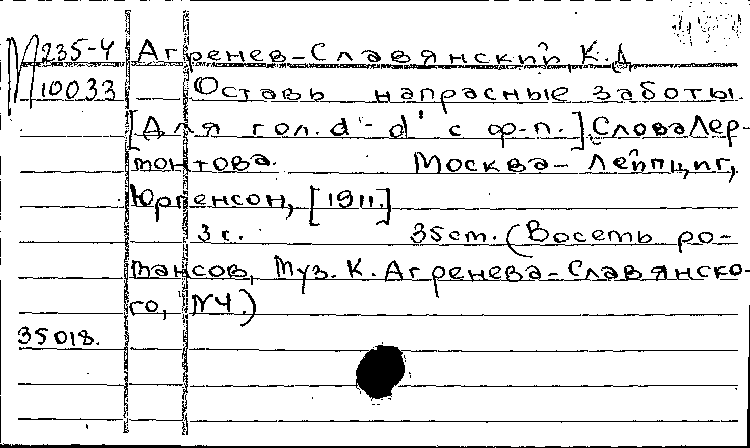 М 235-4 Агренев-Славянский, К.Д.
10033 Оставь напрасные заботы.
[Для гол. d'-d' с ф-п.] Слова Лер-
монтова. Москва-Лейпциг,
Юргенсон, [1911.]
3 с. 35 см. (Восемь ро-
мансов, муз. К. Агренева-Славянско-
го, №4.)
35018.